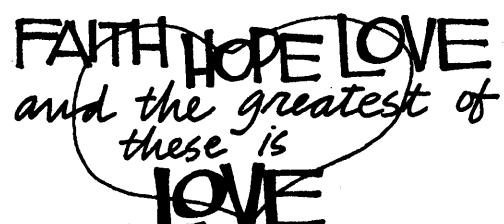 FAITH HOPE LOVE
and the greatest of
these is
LOVE